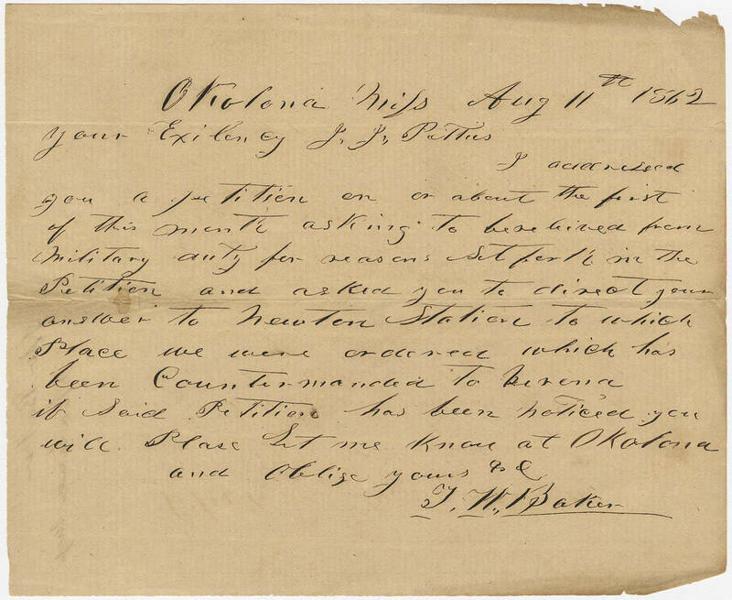 Okolona Miss Aug 11th 1862
your Exilency J. J. Pettus
I addressed
you a petition on or about the first
of this month asking to be releived from
Military duty for reasons Set forth in the
Petition and asked you to direct your
answer to Newton Station to which
Place we were ordered which has
been Countermanded to Verona
if Said Petition has been noticed you
will Please Let me Know at Okolona
and Oblige yours &c
W. Baker